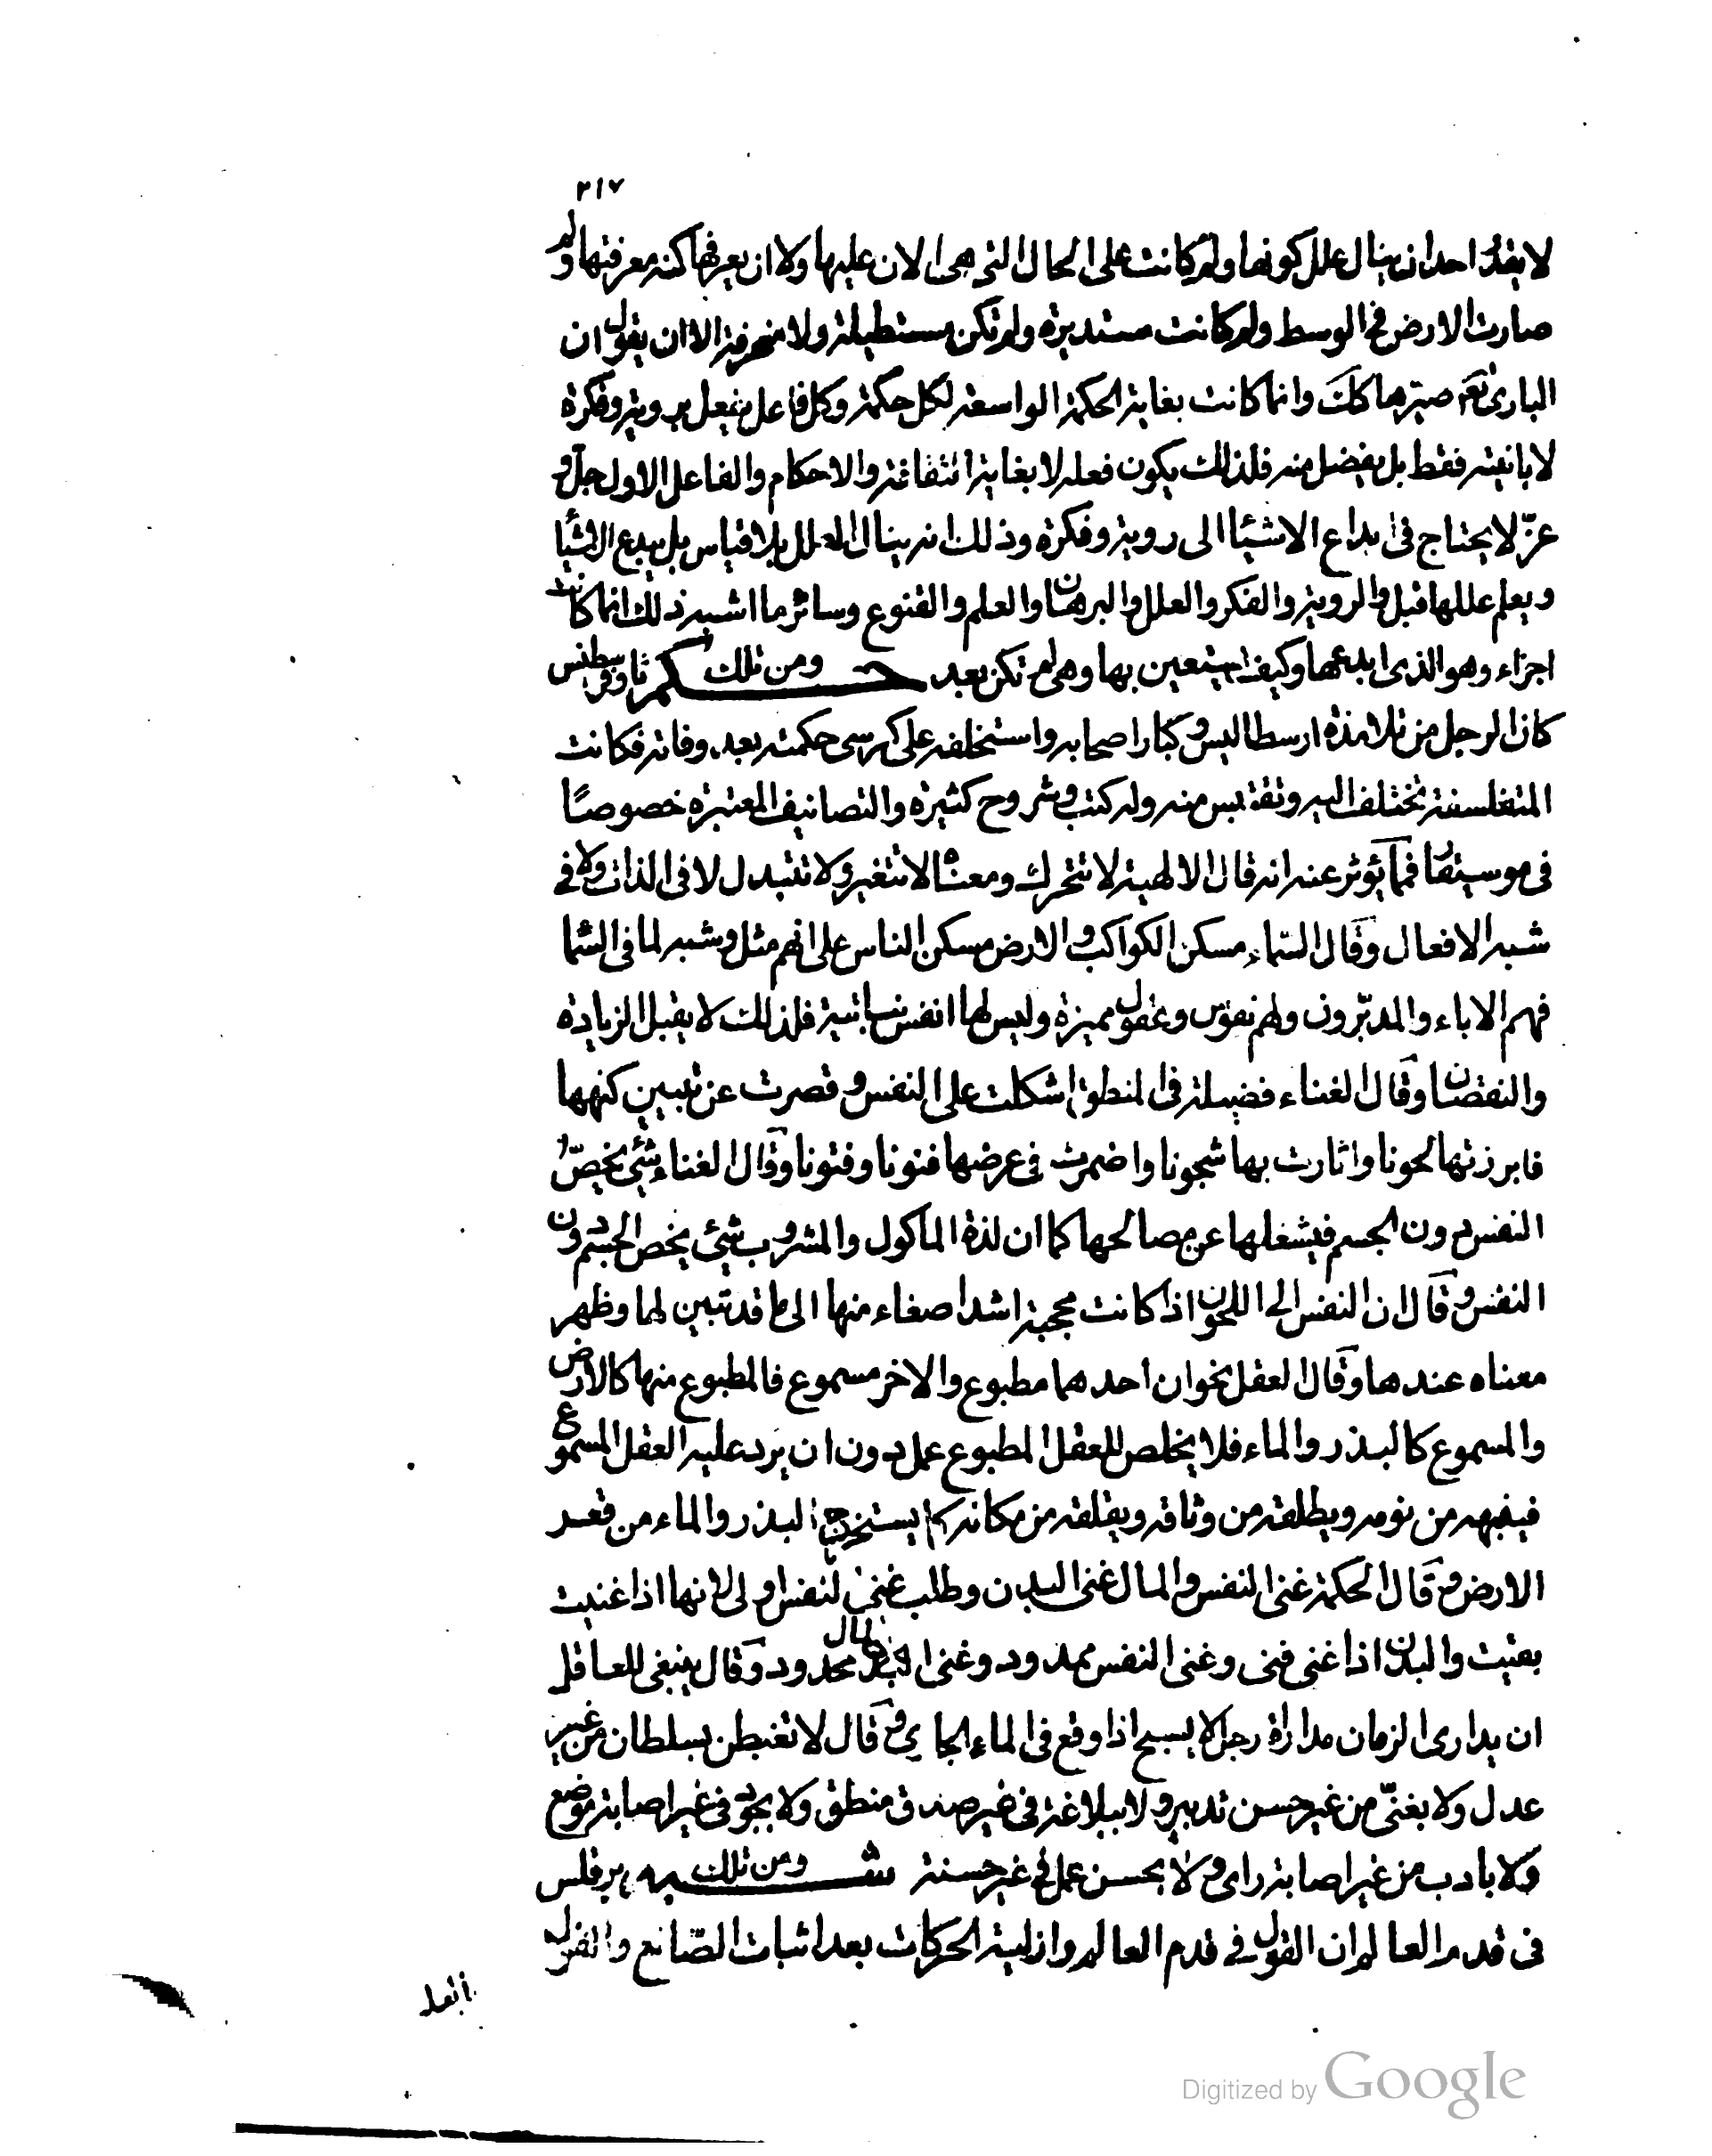 ٣١٧
لا يقدر احد ان ينال علل كونها ولم كانت على الحال التى هى الان عليها ولا ان يعرفها كنه معرفتها ولم
صارت الارض فى الوسط ولم كانت مستديرة ولم تكن مستطيلة ولا منحرفة الا ان يقول ان
البارى تعم صيرها كك وانما كانت بغاية الحكمة الواسعة لكل حكمة وكل فاعل يفعل بروية وفكرة
لا بانيته فقط بل بفضل منه فلذلك يكون فعله لا بغاية الثقافة والاحكام والفاعل الاول جل و
عزّ لا يحتاج فى ابداع الاشيا الى روية وفكرة وذلك انه ينال العلل بلا قياس بل يبدع الاشيا
ويعلم عللها قبل والروية والفكر والعلل والبرهان والعلم والقنوع وسائر ما اشبه ذلك انما كانت
اجزاء وهو الذى ابدعها وكيف يستعين بها وهى لم تكن بعد ومن تلك حكم ثاوفرسطيس
كان الرجل من تلامذة ارسطاليس وكبار اصحابه واستخلفه على كرسى حكمته بعد وفاته فكانت
المتفلسفة تختلف اليه وتقتبس منه وله كتب وشروح كثيرة والتصانيف المعتبرة خصوصًا
فى موسيقا فمما يؤثر عنه انه قال الالهية لا تتحرك ومعناه لا تتغير ولا تتبدل لا فى الذات ولا فى
شبه الافعال وقال السّماء مسكن الكواكب والارض مسكن الناس على انهم مثل وشبه لما فى السّما
فهم الاباء والمدبّرون ولهم نفوس وعقول مميزة وليس لها انفس نباتية فلذلك لا يقبل الزيادة
والنقصان وقال الغناء فضيلة فى المنطق اشكلت على النفس وقصرت عن تبيين كنهها
فابرزتها لحونا واثارت بها شجونا واضمرت فى عرضها فنونا وفتونا وقال الغناء شىء يخصّ
النفس دون الجسم فيشغلها عن مصالحها كما ان لذة الماكول والمشروب شىء يخص الجسم دون
النفس وقال ان النفس الى اللحون اذا كانت محجبة اشد اصغاء منها الى ما قد تبين لها وظهر
معناه عندها وقال العقل نحوان احدهما مطبوع والاخر مسموع فالمطبوع منها كالارض
والمسموع كالبذر والماء فلا يخلص للعقل المطبوع عمل دون ان يرد عليه العقل المسموع
فينبهه من نومه ويطلقه من وثاقه ويقلقه من مكانه كما يستخرج البذر والماء من قعر
الارض وقال الحكمة غنى النفس والمال غنى البدن وطلب غنى النفس اولى لانها اذا غنيت
بقيت والبدن اذا غنى فنى وغنى النفس ممدود وغنى المال محدود وقال ينبغى للعاقل
ان يدارى الزمان مداراة رجل لا يسبح اذا وقع فى الماء الجارى وقال لا تغبطن بسلطان من غير
عدل ولا بغنىّ من غير حسن تدبير ولا ببلاغة فى غير صدق منطق ولا بجود فى غير اصابة موضع
ولا بادب من غير اصابة راى ولا بحسن عمل فى غير حسنة ومن تلك شبه برقلس
فى قدم العالم ان القول فى قدم العالم وازلية الحركات بعد اثبات الصّانع والقول
بالعلة
Digitized by Google